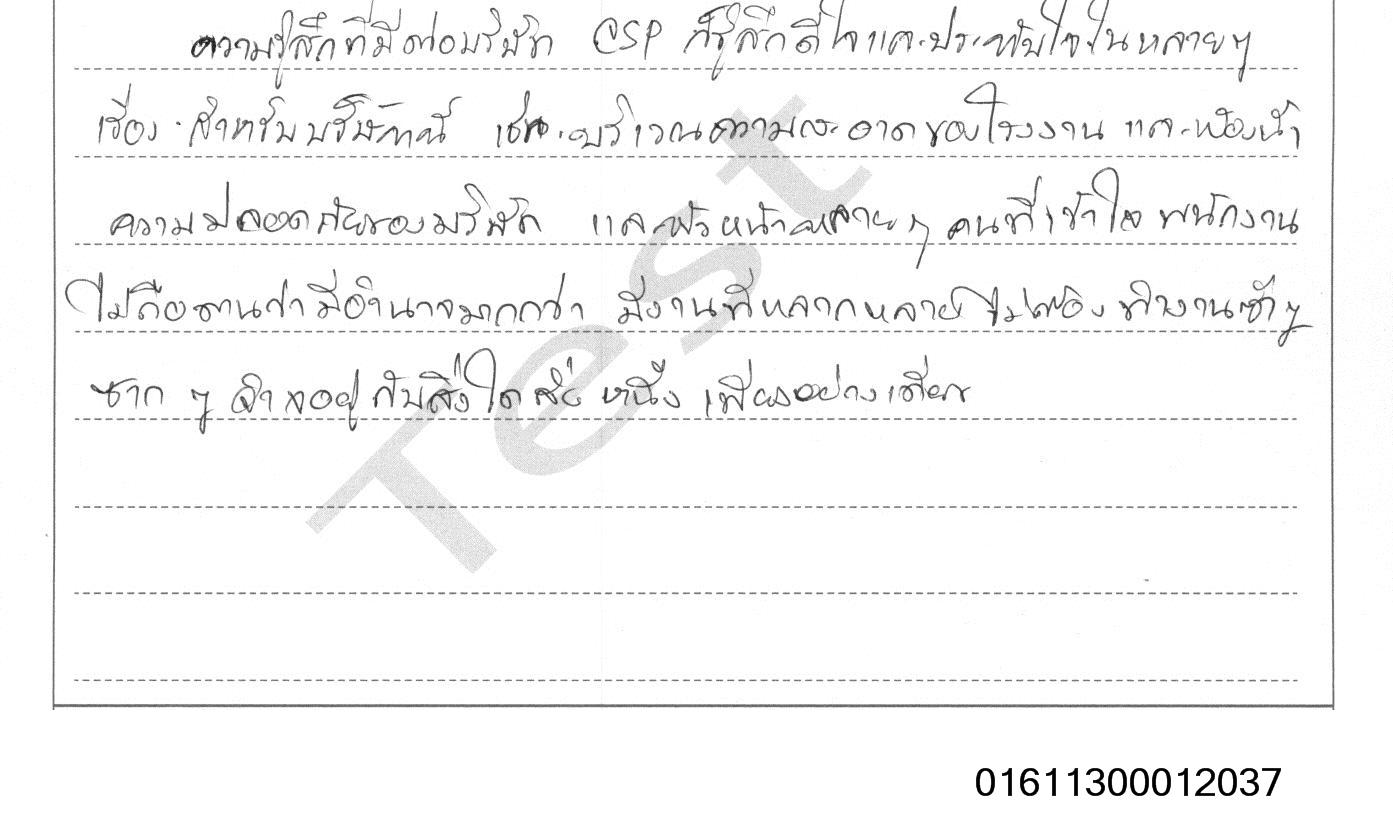 ความรู้สึกที่มีต่อบริษัท CSP ก็รู้สึกดีใจและประทับใจในหลายๆ
เรื่อง สำหรับบริษัทนี้ เช่น บริเวณความสะอาดของโรงงาน และห้องน้ำ
ความปลอดภัยของบริษัท และหัวหน้าหลายๆ คนที่เข้าใจ พนักงาน
ไม่ถือตนว่า มีอำนาจมากกว่า มีงานที่หลากหลาย ไม่ต้อง ทำงานซ้ำๆ
ซาก ๆ จำเจอยู่ กับสิ่งใดสิ่งหนึ่ง เพียงอย่างเดียว
Test
01611300012037